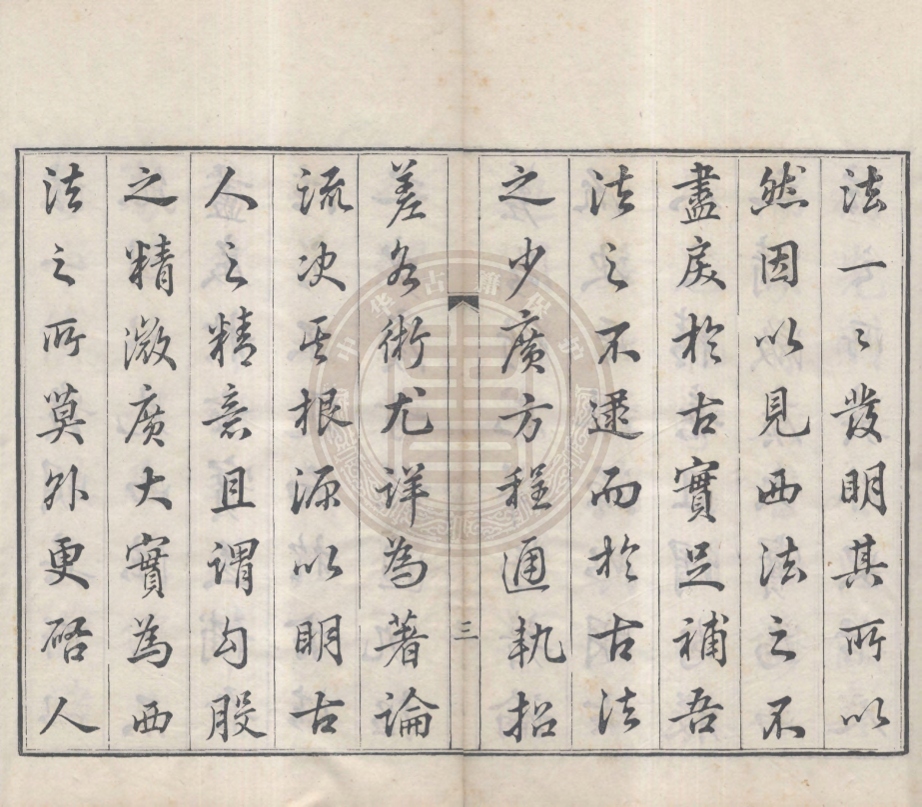 法一〻發明其所以
然因以見西法之不
盡戾於古實足補吾
法之不逮而於古法
之少廣方程通軌招
三
差各術尤詳為著論
疏次其根源以明古
人之精意且謂勾股
之精微廣大實為西
法之所莫外更啓人
中华古籍保护